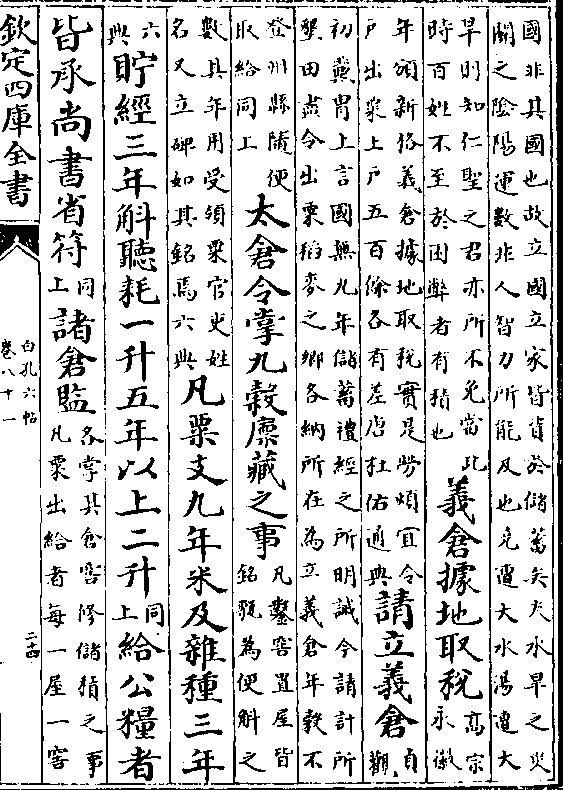 國非其國也故立國立家皆資於儲蓄矣夫水旱之災
關之陰陽運數非人智力所能及也堯遭大水湯遭大
旱則知仁聖之君亦所不免當此
時百姓不至於困弊者有積也
義倉據地取稅
高宗
永徽
年頒新格義倉據地取稅實是勞煩宜令
戶出粟上戶五百餘各有差唐杜佑通典
請立義倉
貞
觀
初戴胄上言國無九年儲蓄禮經之所明誡今請計所
墾田畝令出粟稻麥之鄉各納所在為立義倉年穀不
登州縣隨便
取給同工
太倉令掌九穀廩藏之事
凡鑿窖置屋皆
銘甎為便斛之
數具年用受領粟官吏姓
名又立碑如其銘焉六典
凡粟支九年米及雜種三年
六
典
貯經三年斛聽耗一升五年以上二升
同
上
給公糧者
皆承尚書省符
同
上
諸倉監
各掌其倉窖修儲積之事
凡粟出給者每一屋一窖
欽定四庫全書
白孔六帖
卷八十一
二十四